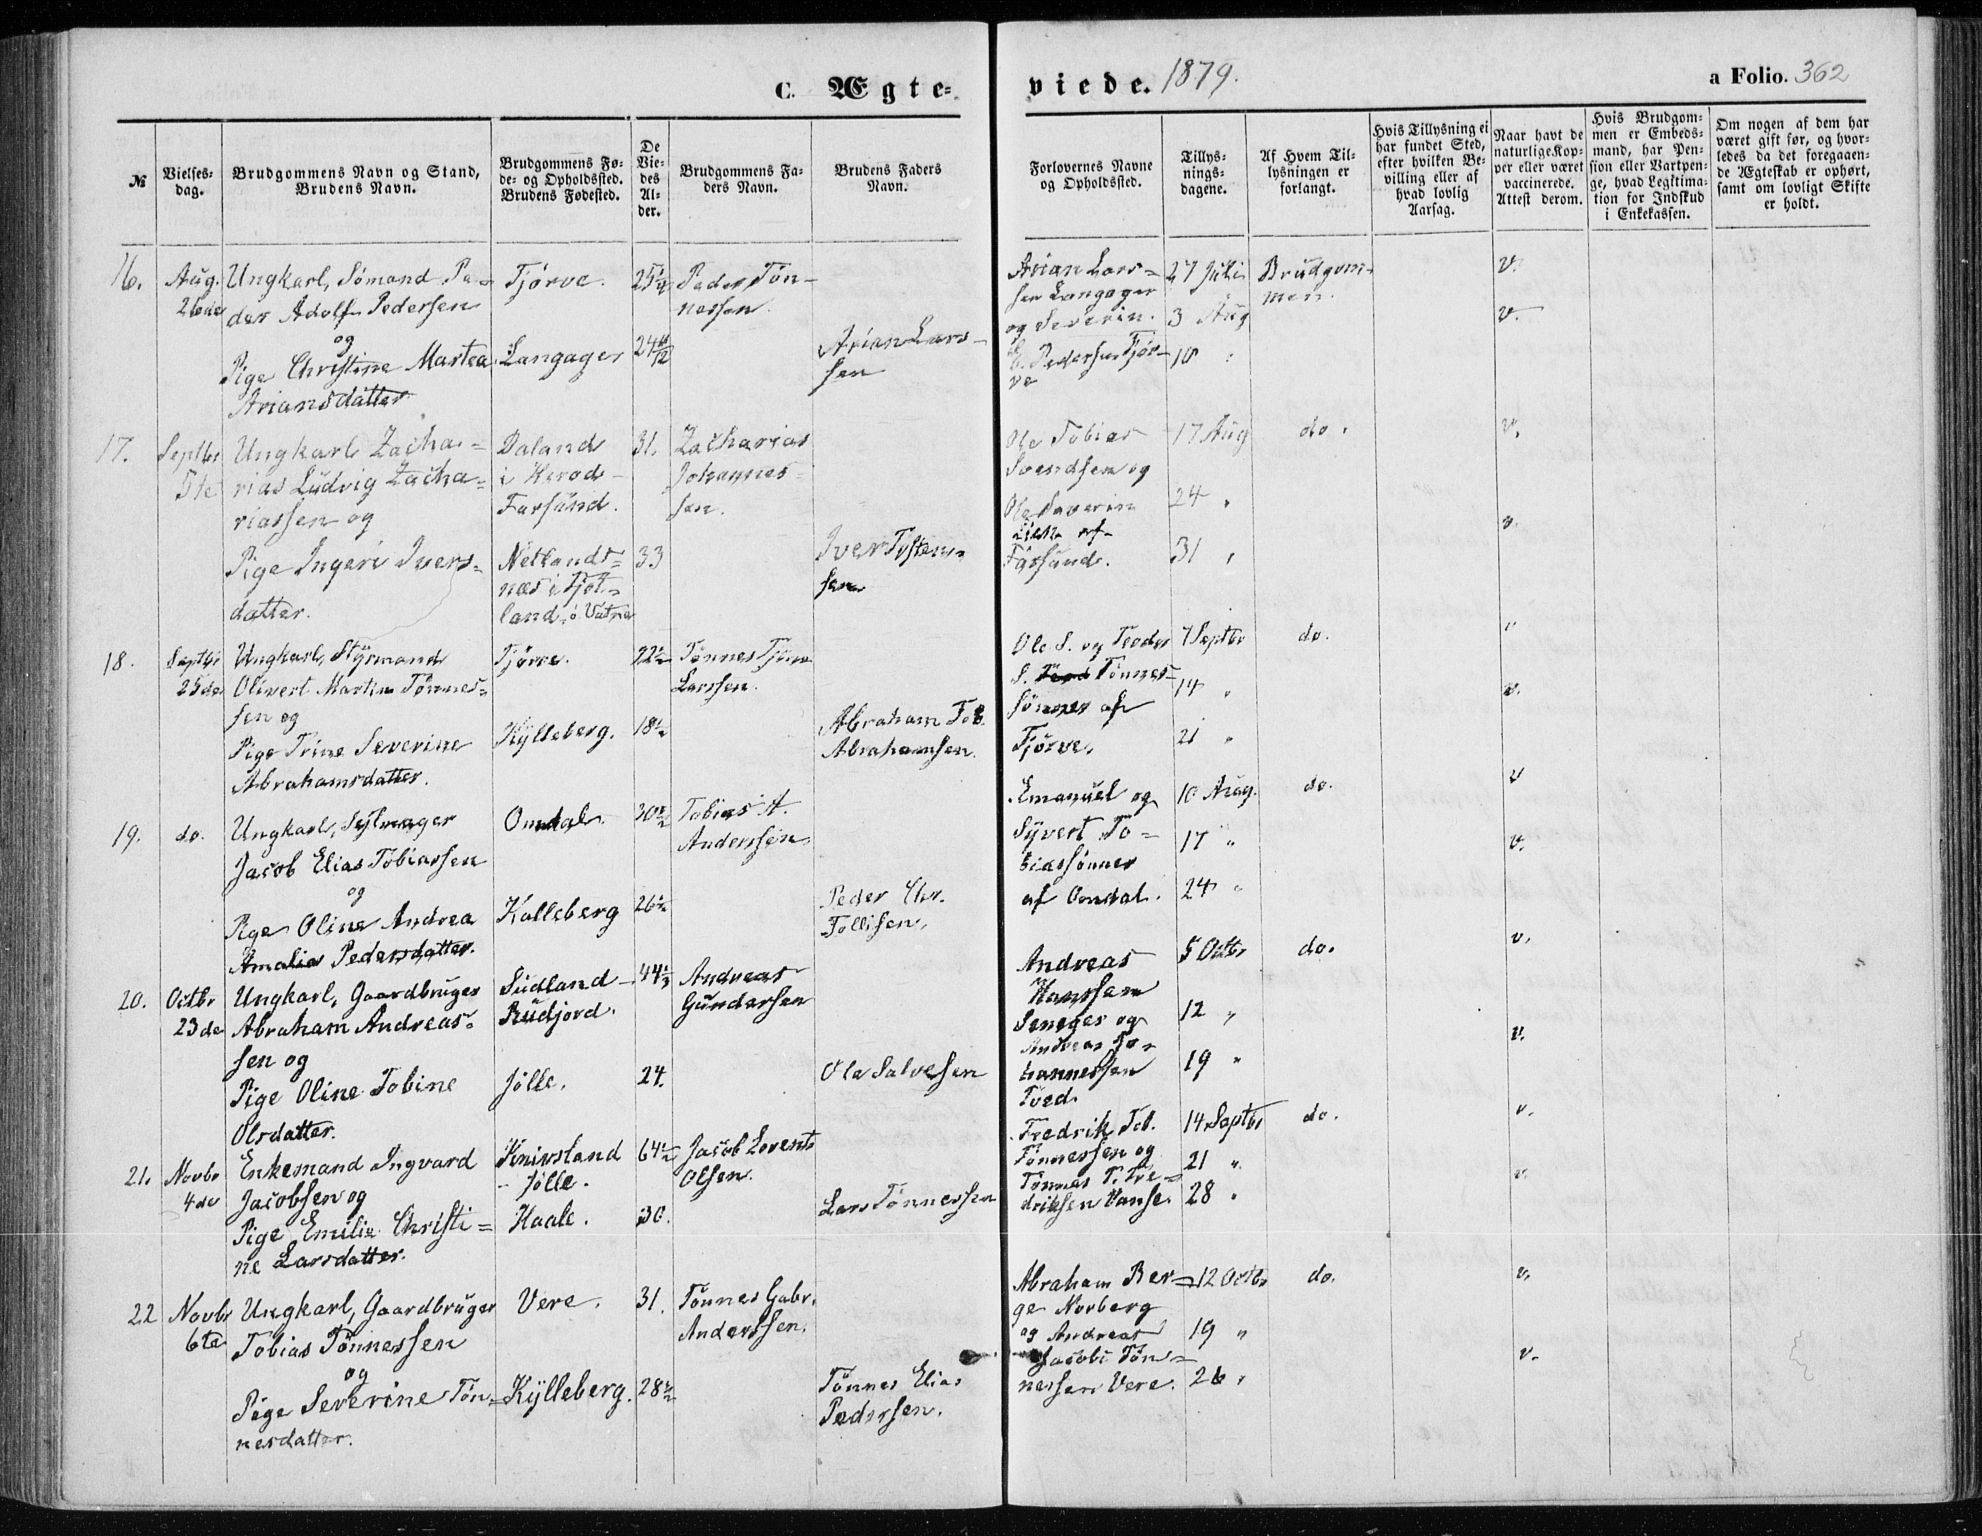 C. Ægte-
viede. 1879.
a Folio. 362
№
Vielses-
dag.
Brudgommens Navn og Stand,
Brudens Navn.
Brudgommens Fø-
de- og Opholdssted.
Brudens Fødested.
De
Vie-
des
Al-
der.
Brudgommens Fa-
ders Navn.
Brudens Faders
Navn.
Forlovernes Navne
og Opholdssted.
Tillys-
nings-
dagene.
Af Hvem Til-
lysningen er
forlangt.
Hvis Tillysning ei
har fundet Sted,
efter hvilken Be-
villing eller af
hvad lovlig
Aarsag.
Naar havt de
naturlige Kop-
per eller været
vaccinerede.
Attest derom.
Hvis Brudgom-
men er Embeds-
mand, har Pen-
sion eller Vartpen-
ge, hvad Legitima-
tion for Indskud
i Enkekassen.
Om nogen af dem har
været gift før, og hvor-
ledes da det foregaaen-
de Ægteskab er ophørt,
samt om lovligt Skifte
er holdt.
16.
Aug.
26de
Ungkarl, Sømand Pe-
der Adolf Pedersen
og
Pige Christine Martea
Ariansdatter
Tjørve.
Langager
25 1/4
24 11/12
Peder Tøn-
nessen.
Arian Lars-
sen
Arian Lars-
sen Langager
og Severin.
Pedersen Tjør-
ve
27 Juli
3 Aug
10 "
Brudgom-
men.
v.
v.
17.
Septbr
5te
Ungkarl Zacha-
rias Ludvig Zacha-
riassen og
Pige Ingeri Ivers-
datter.
Daland
i Herad-
Farsund.
Netlandt-
nes i Fjot-
land, i Vatne
31.
33
Zacharias
Johannes-
sen.
Iver Tosten-
sen
Ole Tobias
Svendsen og
Ole Severin
af
Farsund.
17 Aug
24 "
31 "
do.
v.
v.
18.
Septbr
25de
Ungkarl, Styrmand
Olivert Martin Tønnes-
sen og
Pige Trine Severine
Abrahamsdatter.
Tjørve.
Kylleberg.
22 1/2
18 1/2
Tønnes Tjørve
Larssen.
Abraham Tob.
Abrahamsen.
Ole S. og Teodor
S. Tønnes-
sønner af
Tjørve.
7 Septbr
14 "
21 "
do.
v
v.
19.
do.
Ungkarl, Sejlmager
Jacob Elias Tobiassen
og
Pige Oline Andrea
Amalia Pedersdatter.
Omdal.
Kalleberg
30 11/12
26 1/2
Tobias A.
Anderssen.
Peder Chr.
Tollisen.
Emanuel og
Syvert To-
biassønner
af Omdal.
10 Aug.
17 "
24 "
do.
v
v.
20.
Octbr
23de
Ungkarl, Gaardbruger
Abraham Andreas-
sen og
Pige Oline Tobine
Olsdatter.
Sudland-
Rudjord.
Jølle.
44 1/3
24.
Andreas
Gundersen
Ole Salvesen
Andreas
Hanssen
Seneger og
Andreas Jo-
hannessen
Tved.
5 Octbr
12 "
19 "
do.
v.
v.
21.
Novbr
4de
Enkemand Ingvard
Jacobsen og
Pige Emilie Christi-
ne Larsdatter.
Knivsland
- Jølle.
Haale.
64 1/2
30.
Jacob Lorents
Olsen.
Lars Tønnessen
Fredrik Tob.
Tønnessen og
Tønnes T. Fre-
driksen Hanse.
14 Septbr
21 "
28 "
do.
v.
v.
22
Novbr
6te
Ungkarl, Gaardbruger
Tobias Tønnessen
og
Pige Severine Tøn-
nesdatter.
Vere.
Kylleberg.
31.
28 1/2
Tønnes Gabr.
Anderssen.
Tønnes Elias
Pedersen.
Abraham Ber-
ge Norberg
og Andreas
Jacobi Tøn-
nessen Vere.
12 Octbr
19 "
26 "
do.
v.
v.